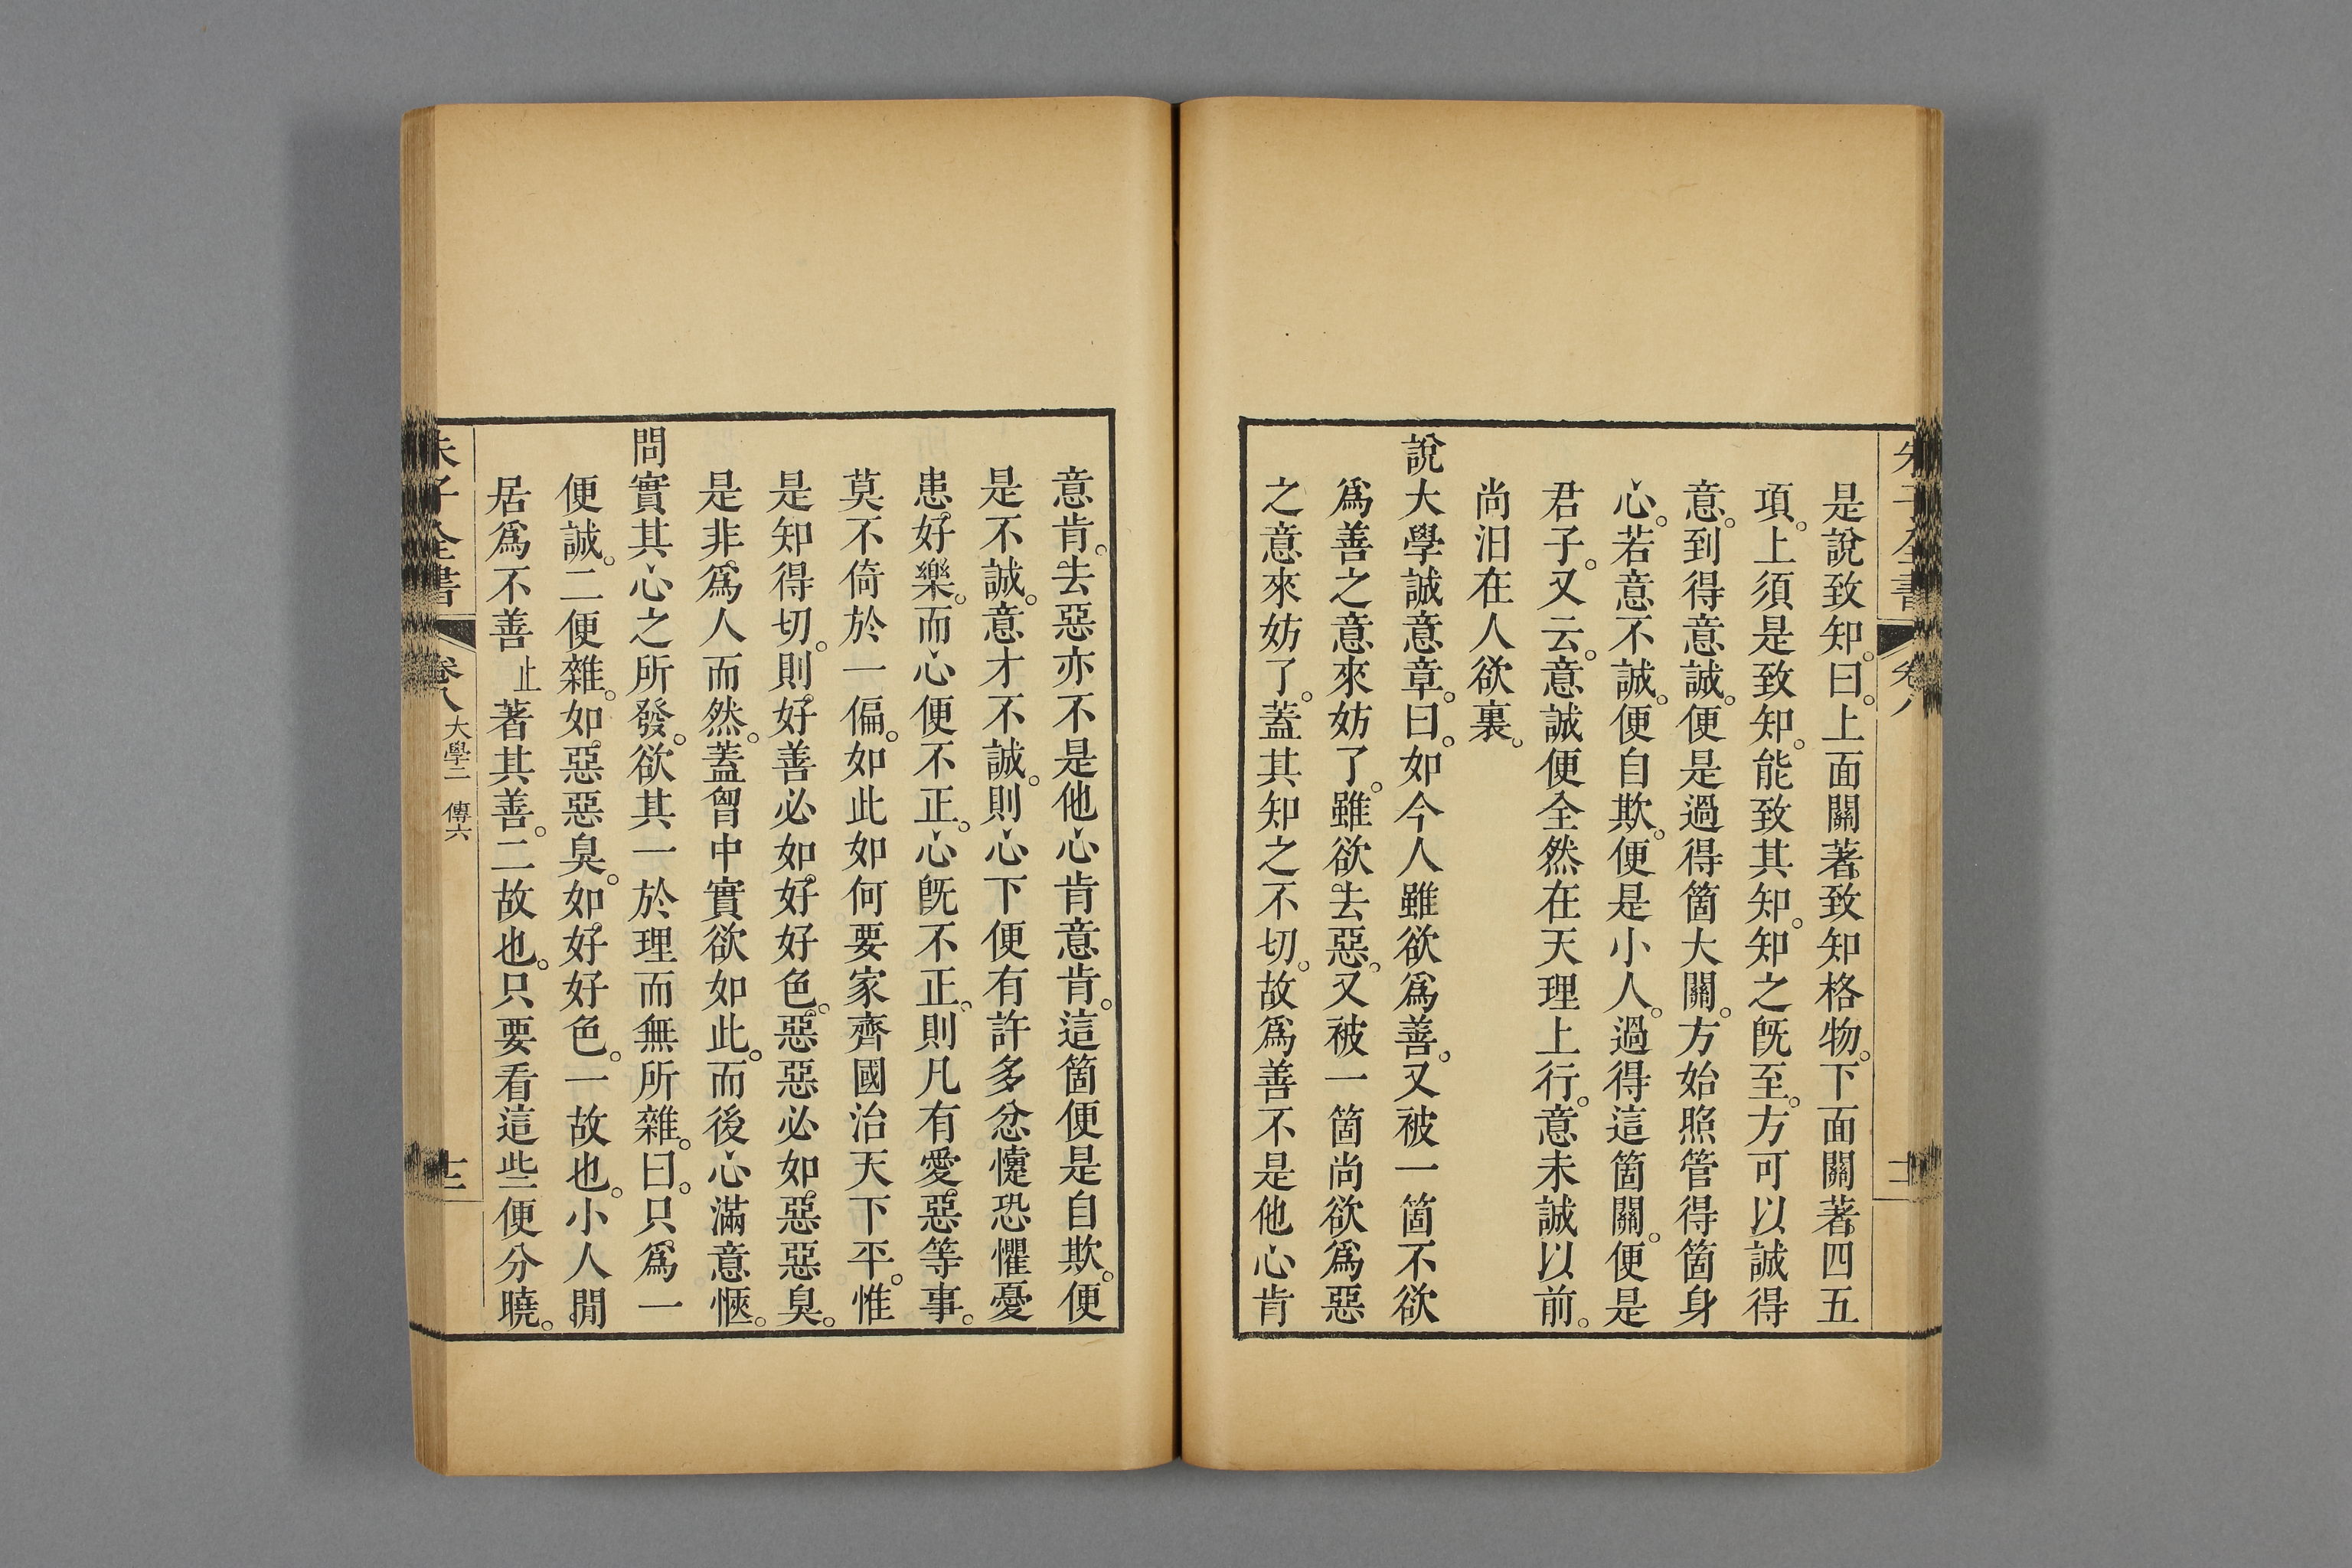 朱子全書 卷八
是說致知。曰。上面關著致知格物。下面關著四五
項。上須是致知。能致其知。知之旣至。方可以誠得
意。到得意誠。便是過得箇大關。方始照管得箇身
心。若意不誠。便自欺。便是小人。過得這箇關。便是
君子。又云。意誠便全然在天理上行。意未誠以前。
尚汨在人欲裏。
說大學誠意章。曰。如今人雖欲爲善。又被一箇不欲
爲善之意來妨了。雖欲去惡。又被一箇尚欲爲惡
之意來妨了。蓋其知之不切。故爲善不是他心肯
意肯。去惡亦不是他心肯意肯。這箇便是自欺。便
是不誠。意才不誠。則心下便有許多忿懥恐懼憂
患好樂。而心便不正。心旣不正。則凡有愛惡等事。
莫不倚於一偏。如此如何要家齊國治天下平。惟
是知得切。則好善必如好好色。惡惡必如惡惡臭。
是非爲人而然。蓋胷中實欲如此。而後心滿意愜。
問實其心之所發。欲其一於理而無所雜。曰。只爲一
便誠。二便雜。如惡惡臭。如好好色。一故也。小人閒
居爲不善止著其善。二故也。只要看這些便分曉。
朱子全書 卷八 大學二 傳六 十三